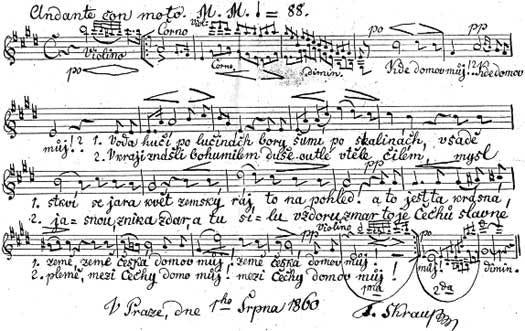 Andante con moto. M. M. ♩ = 88.
Viol: Corno po pp
Violino Corno dimin. Kde domov můj!? Kde domov
po
můj!? 1. Voda hučí po lučinách bory šumí po skalinách, v sadě
2. V kraji znáš-li bohumilém duše outlé v těle čilém, mysl
pp
1. stkví se jara květ zemský ráj to na pohled! a to jest ta krásná,
2. ja=snou, znika zdar, a tu sí=lu vzdoru zmar to je Čechů slavné
pp Violino pp
1. země, země česká domov můj! země česká domov můj! můj! dimin.
2. plémě, mezi Čechy domov můj! mezi Čechy domov můj! 1ma 2da
V Praze, dne 1ho Srpna 1860